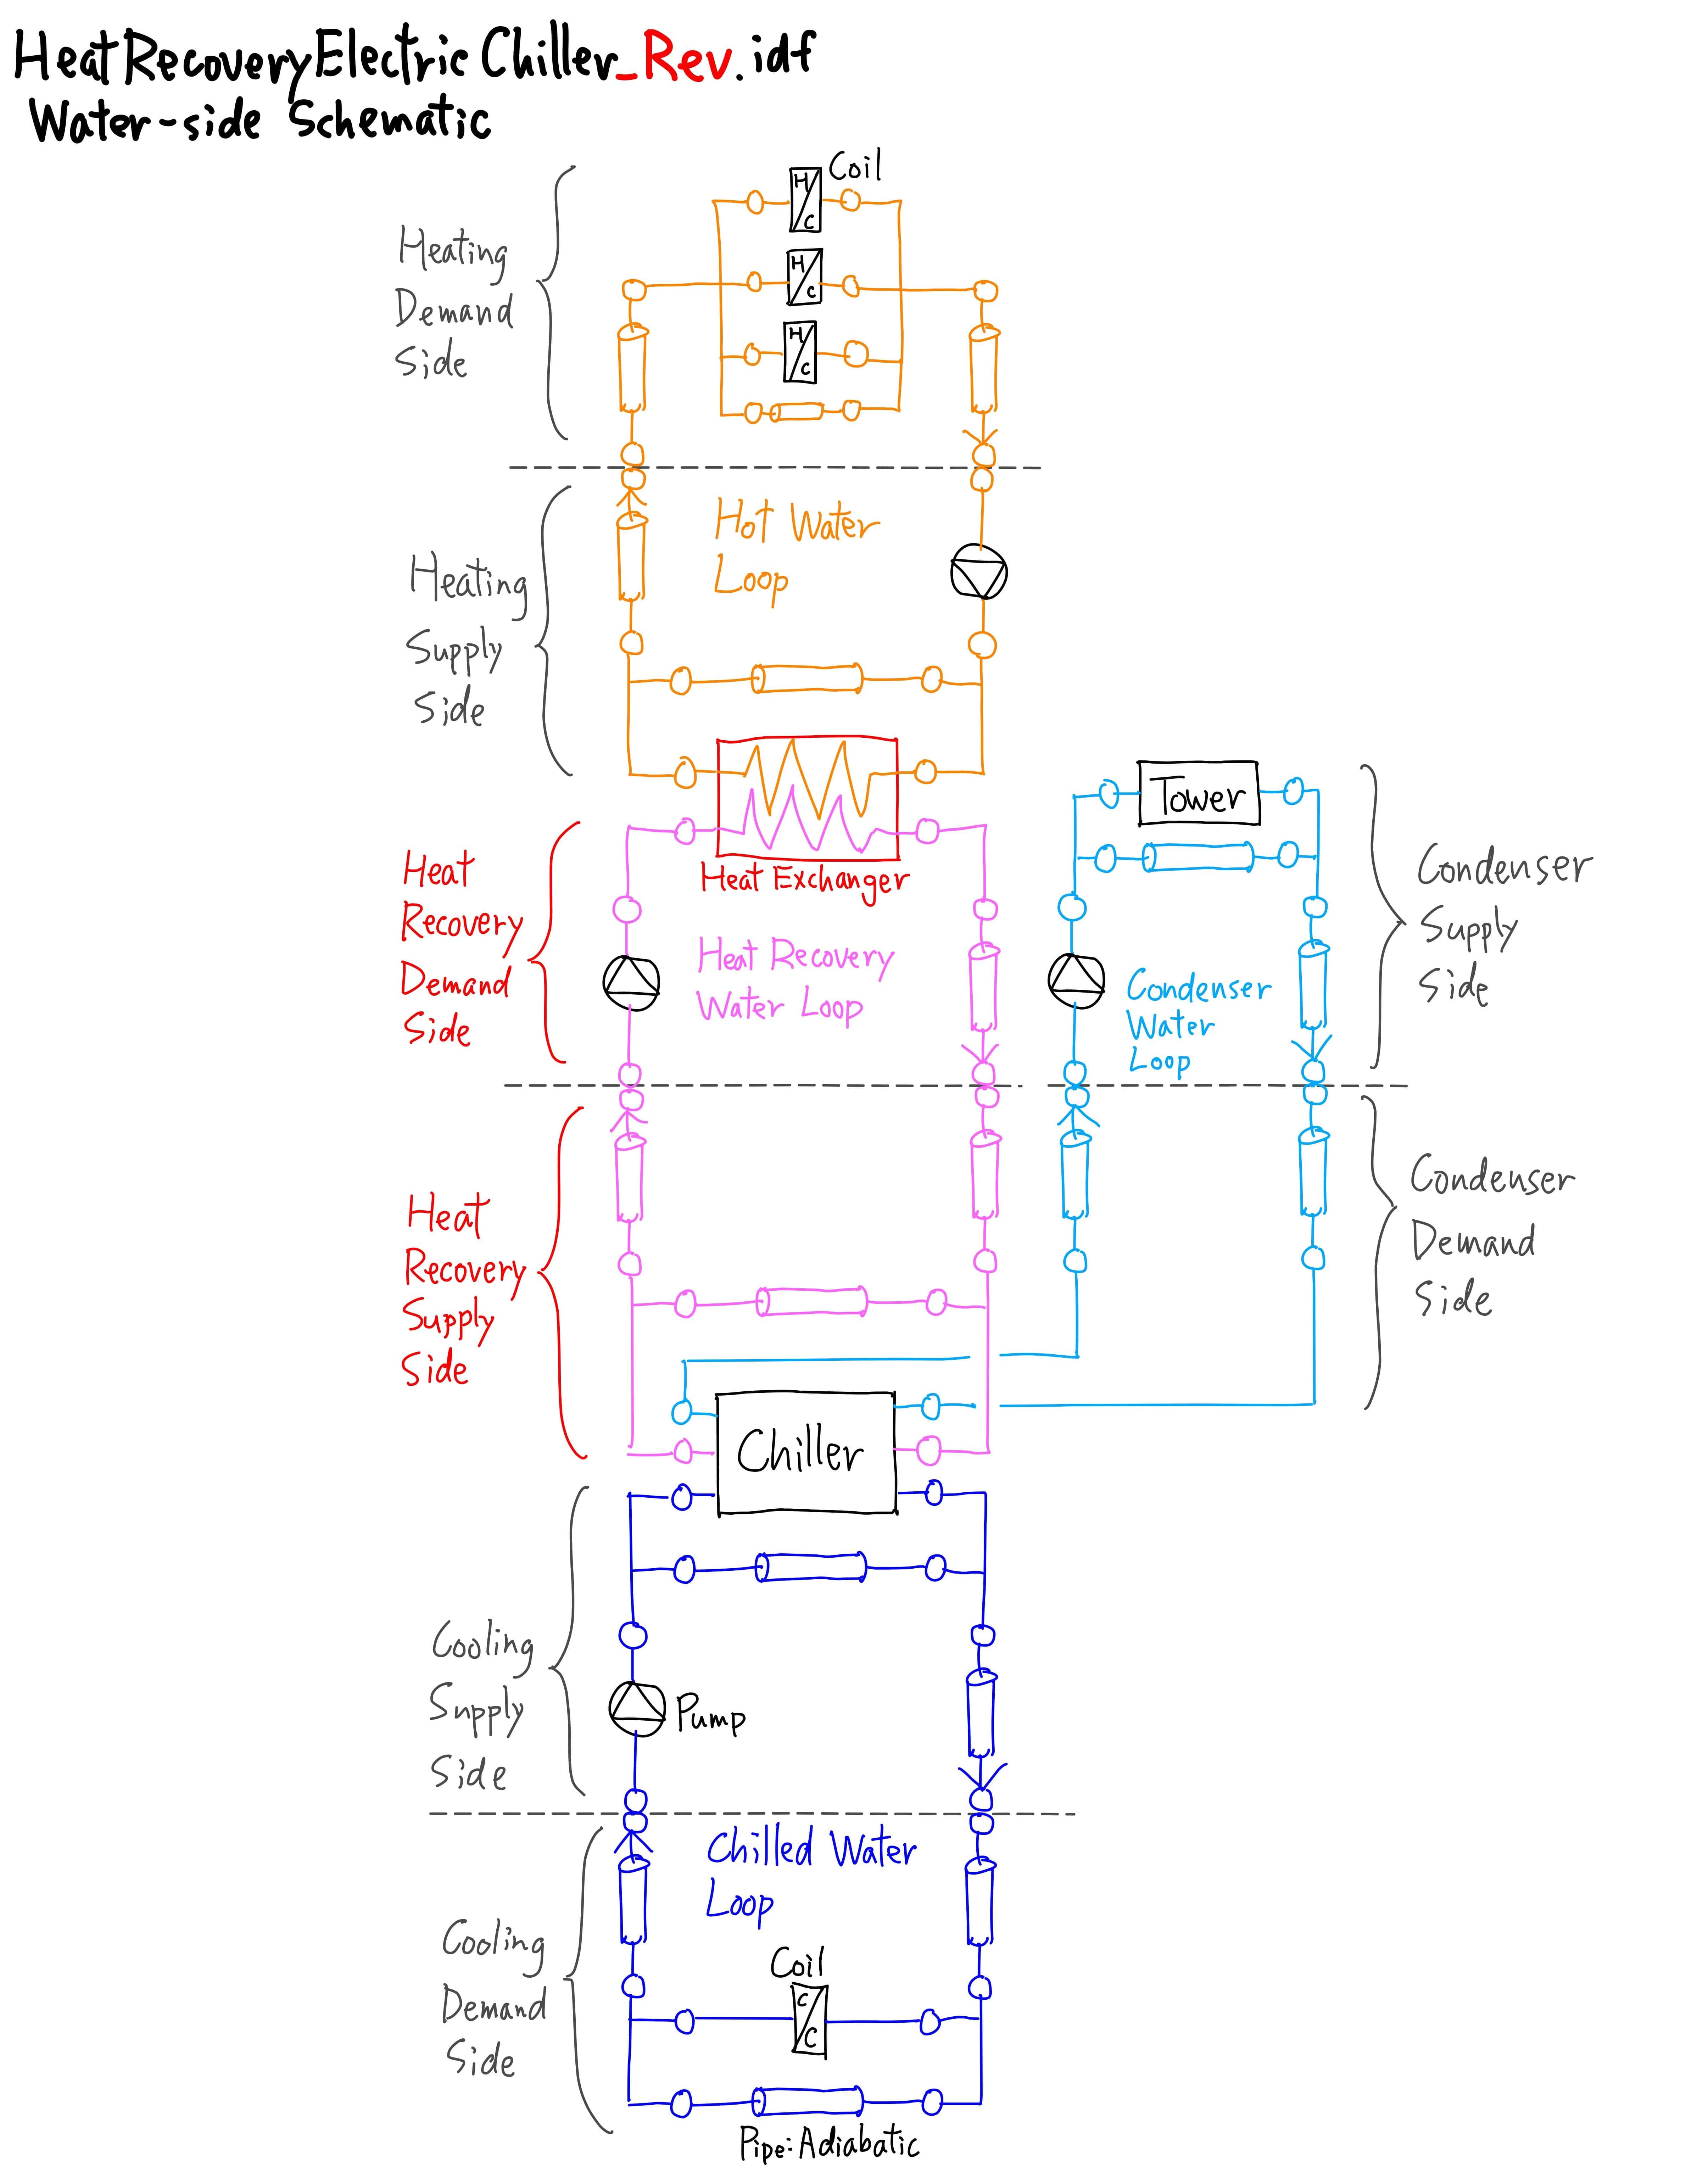 HeatRecoveryElectricChiller_Rev.idf
Water-side Schematic
Coil
H/C
H/C
H/C
Heating
Demand
Side
Hot Water
Loop
Heating
Supply
Side
Tower
Heat Exchanger
Heat
Recovery
Demand
Side
Heat Recovery
Water Loop
Condenser
Water
Loop
Condenser
Supply
Side
Heat
Recovery
Supply
Side
Condenser
Demand
Side
Chiller
Cooling
Supply
Side
Pump
Chilled Water
Loop
Cooling
Demand
Side
Coil
C/C
Pipe:Adiabatic